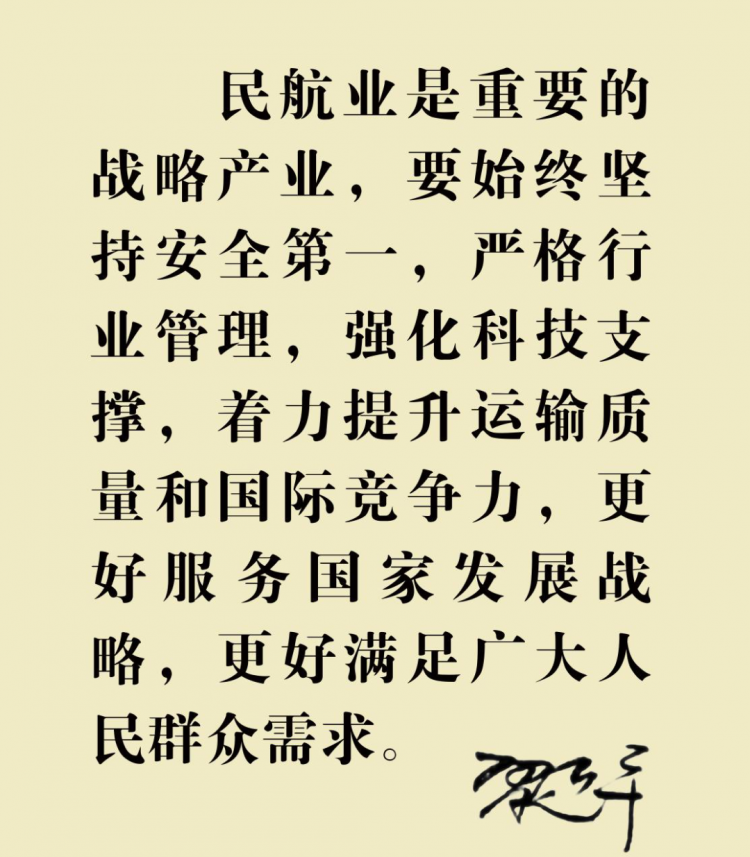 民航业是重要的
战略产业，要始终坚
持安全第一，严格行
业管理，强化科技支
撑，着力提升运输质
量和国际竞争力，更
好服务国家发展战
略，更好满足广大人
民群众需求。